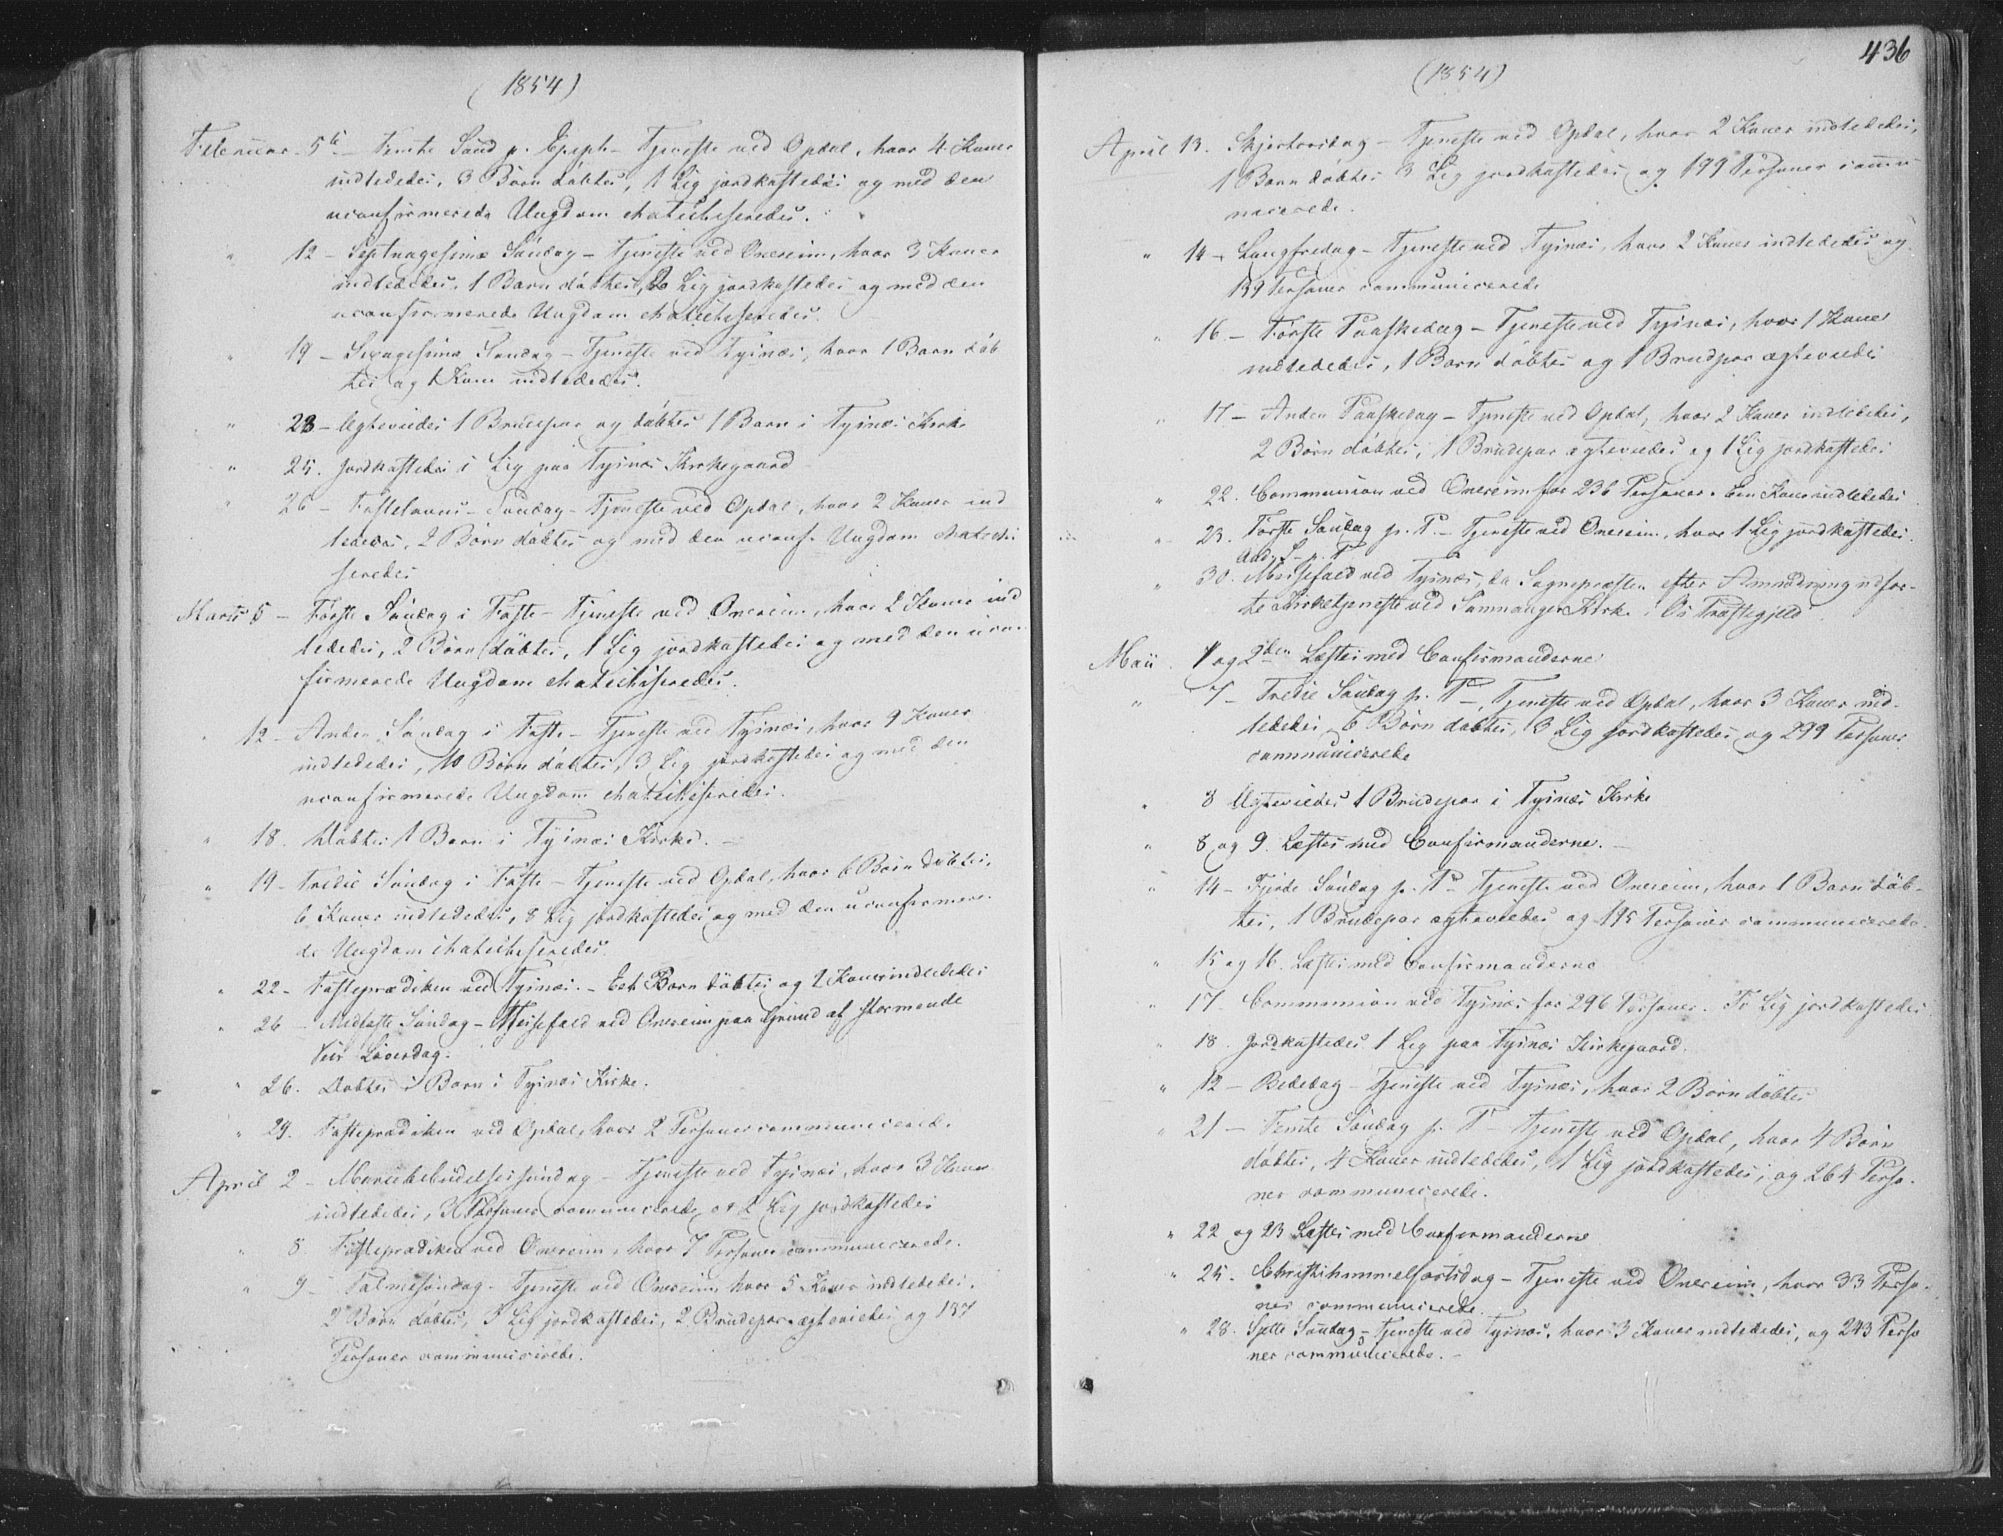 (1854)
Februar 5te – Femte Sønd p. Epeph – Tjeneste ved Opdal, hvor 4 Koner
indlededes, 3 Børn døbtes, 1 Lig jordkastedes og med den
uconfirmerede Ungdom chatechiseredes.
" 12 – Septuagesima Søndag – Tjeneste ved Onereim, hvor 3 Koner
indlededes, 1 Barn døbtes, 2 Lig jordkastedes og med den
uconfirmerede Ungdom chatechiseredes.
" 19 – Sexagesima Søndag – Tjeneste ved Tysnæs, hvor 1 Barn døb
tes og 1 Kone indlededes.
" 23 – Egteviedes 1 Brudepar og døbtes 1 Barn i Tysnæs Kirke
" 25. Jordkastedes 1 Lig paa Tysnæs Kirkegaard
" 26 – Fastelavns-Søndag – Tjeneste ved Opdal, hvor 2 Koner ind
lededes, 2 Børn døbtes og med den uconf. Ungdom chatechi
seredes
Marts 5 – Første Søndag i Faste – Tjeneste ved Onereim, hvor 2 Koner ind
lededes, 2 Børn døbtes, 1 Lig jordkastedes og med den ucon
firmerede Ungdom chatechiseredes.
" 12 – Anden Søndag i Faste – Tjeneste ved Tysnæs, hvor 9 Koner
indlededes, 10 Børn døbtes, 3 Lig jordkastedes og med den
uconfirmerede Ungdom chatechiseredes.
" 18. Døbtes 1 Barn i Tysnæs Kirke. –
" 19 – Tredie Søndag i Faste – Tjeneste ved Opdal, hvor 6 Børn døbtes,
6 Koner indlededes, 8 Lig jordkastedes og med den uconfirmere-
de Ungdom chatechiseredes.
" 22 – Fasteprædiken ved Tysnæs. – Eet Barn døbtes og 2 Koner indlededes
" 26 – Midfaste Søndag – Messefald ved Onereim paa Grund af stormende
Veir Løverdag.
" 26. Døbtes 1 Barn i Tysnæs Kirke.
" 29. Fasteprædiken ved Opdal, hvor 2 Personer communicerede.
April 2 – Mariæbebudelsessøndag – Tjeneste ved Tysnæs, hvor 3 Koner
indlededes, Personer communicerede og 2 Lig jordkastedes
" 5 Fasteprædiken ved Onereim, hvor 7 Personer communicerede.
" 9 – Palmesøndag – Tjeneste ved Onereim hvor 5 Koner indlededes,
2 Børn døbtes, 3 Lig jordkastedes, 2 Brudepar egteviedes og 137
Personer communicerede.
436
(1854)
April 13. Skjertorsdag – Tjeneste ved Opdal, hvor 2 Koner indlededes,
1 Barn døbtes 3 Lig jordkastedes og 199 Personer commu
nicerede.
" 14 – Langfredag – Tjeneste ved Tysnæs, hvor 2 Koner indlededes og
139 Personer communicerede
" 16 – Første Paaskedag – Tjeneste ved Tysnæs, hvor 1 Kone
indlededes, 1 Barn døbtes og 1 Brudpar egteviedes
" 17 – Anden Paaskedag – Tjeneste ved Opdal, hvor 2 Koner indlededes,
2 Børn døbtes, 1 Brudepar egteviedes og 1 Lig jordkastedes
" 22. Communion ved Onereim for 236 Personer. Een Kone indlededes
" 23. Første Søndag p. P. – Tjeneste ved Onereim, hvor 1 Lig jordkastedes.
And. S. p. P
" 30. Messefald ved Tysnæs, da Sognepræsten efter Anmodning udfør-
te Kirketjeneste ved Samnanger Kirke i Os Præstegjeld
Maii 1 og 2den Læstes med Confirmanderne
" 7 – Tredie Søndag p. P –, Tjeneste ved Opdal, hvor 3 Koner ind-
lededes, 6 Børn døbtes, 3 Lig jordkastedes og 299 Personer
communicerede
" 8 Egteviedes 1 Brudepar i Tysnæs Kirke
" 8 og 9. Læstes med Confirmanderne. –
" 14 – Fjerde Søndag p. P – Tjeneste ved Onereim, hvor 1 Barn døb-
tes, 1 Brudepar egteviedes og 195 Personer communicerede.
" 15 og 16. Læstes med Confirmanderne
" 17. Communion ved Tysnæs for 296 Personer. To Lig jordkastedes
" 18. Jordkastedes 1 Lig paa Tysnæs Kirkegaard.
" 12 – Bededag – Tjeneste ved Tysnæs, hvor 2 Børn døbtes
" 21 – Femte Søndag p. P – Tjeneste ved Opdal, hvor 4 Børn
døbtes, 4 Koner indlededes, 1 Lig jordkastedes, og 264 Perso-
ner communicerede.
" 22 og 23 Læstes med Confirmanderne
" 25. Christihimmelfartsdag – Tjeneste ved Onereim, hvor 33 Perso-
ner communicerede.
" 28. Sjette Søndag – Tjeneste ved Tysnæs, hvor 3 Koner indlededes, og 243 Perso
ner communicerede. –